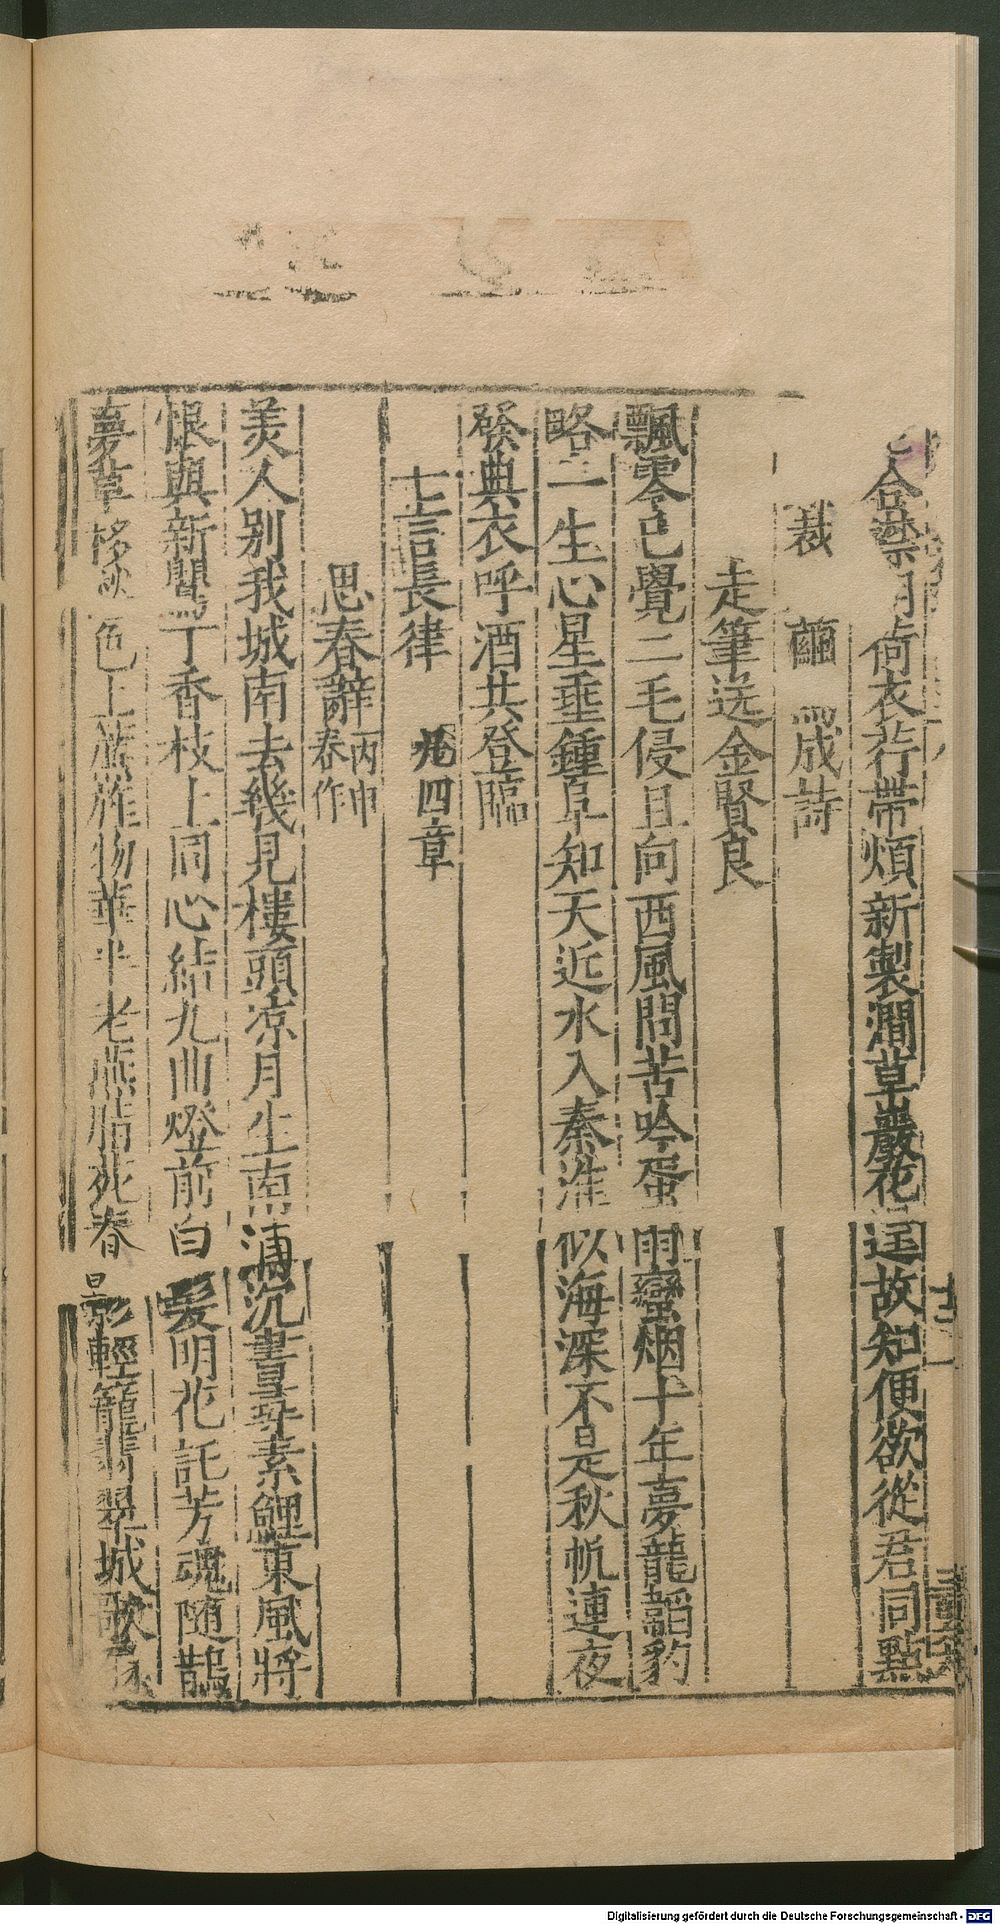 合禁用荷衣荇帶煩新製澗草巖花逞故知便欲從君同點
裁繭成詩
走筆送金賢良
飄零已覺二毛侵且向西風問苦吟蛋雨蠻烟十年夢龍韜豹
略一生心星垂鍾阜知天近水入秦淮似海深不是秋帆連夜
發典衣呼酒共登臨
七言長律 凡四章
思春辭 丙申春作
美人別我城南去幾見樓頭凉月生南浦沉書尋素鯉東風將
恨與新鶯丁香枝上同心結九曲燈前白髮明花託芳魂隨鵲
夢草移色上物華半老燕脂苑春影輕籠翡翠城歌
Digitalisierung gefördert durch die Deutsche Forschungsgemeinschaft - DFG